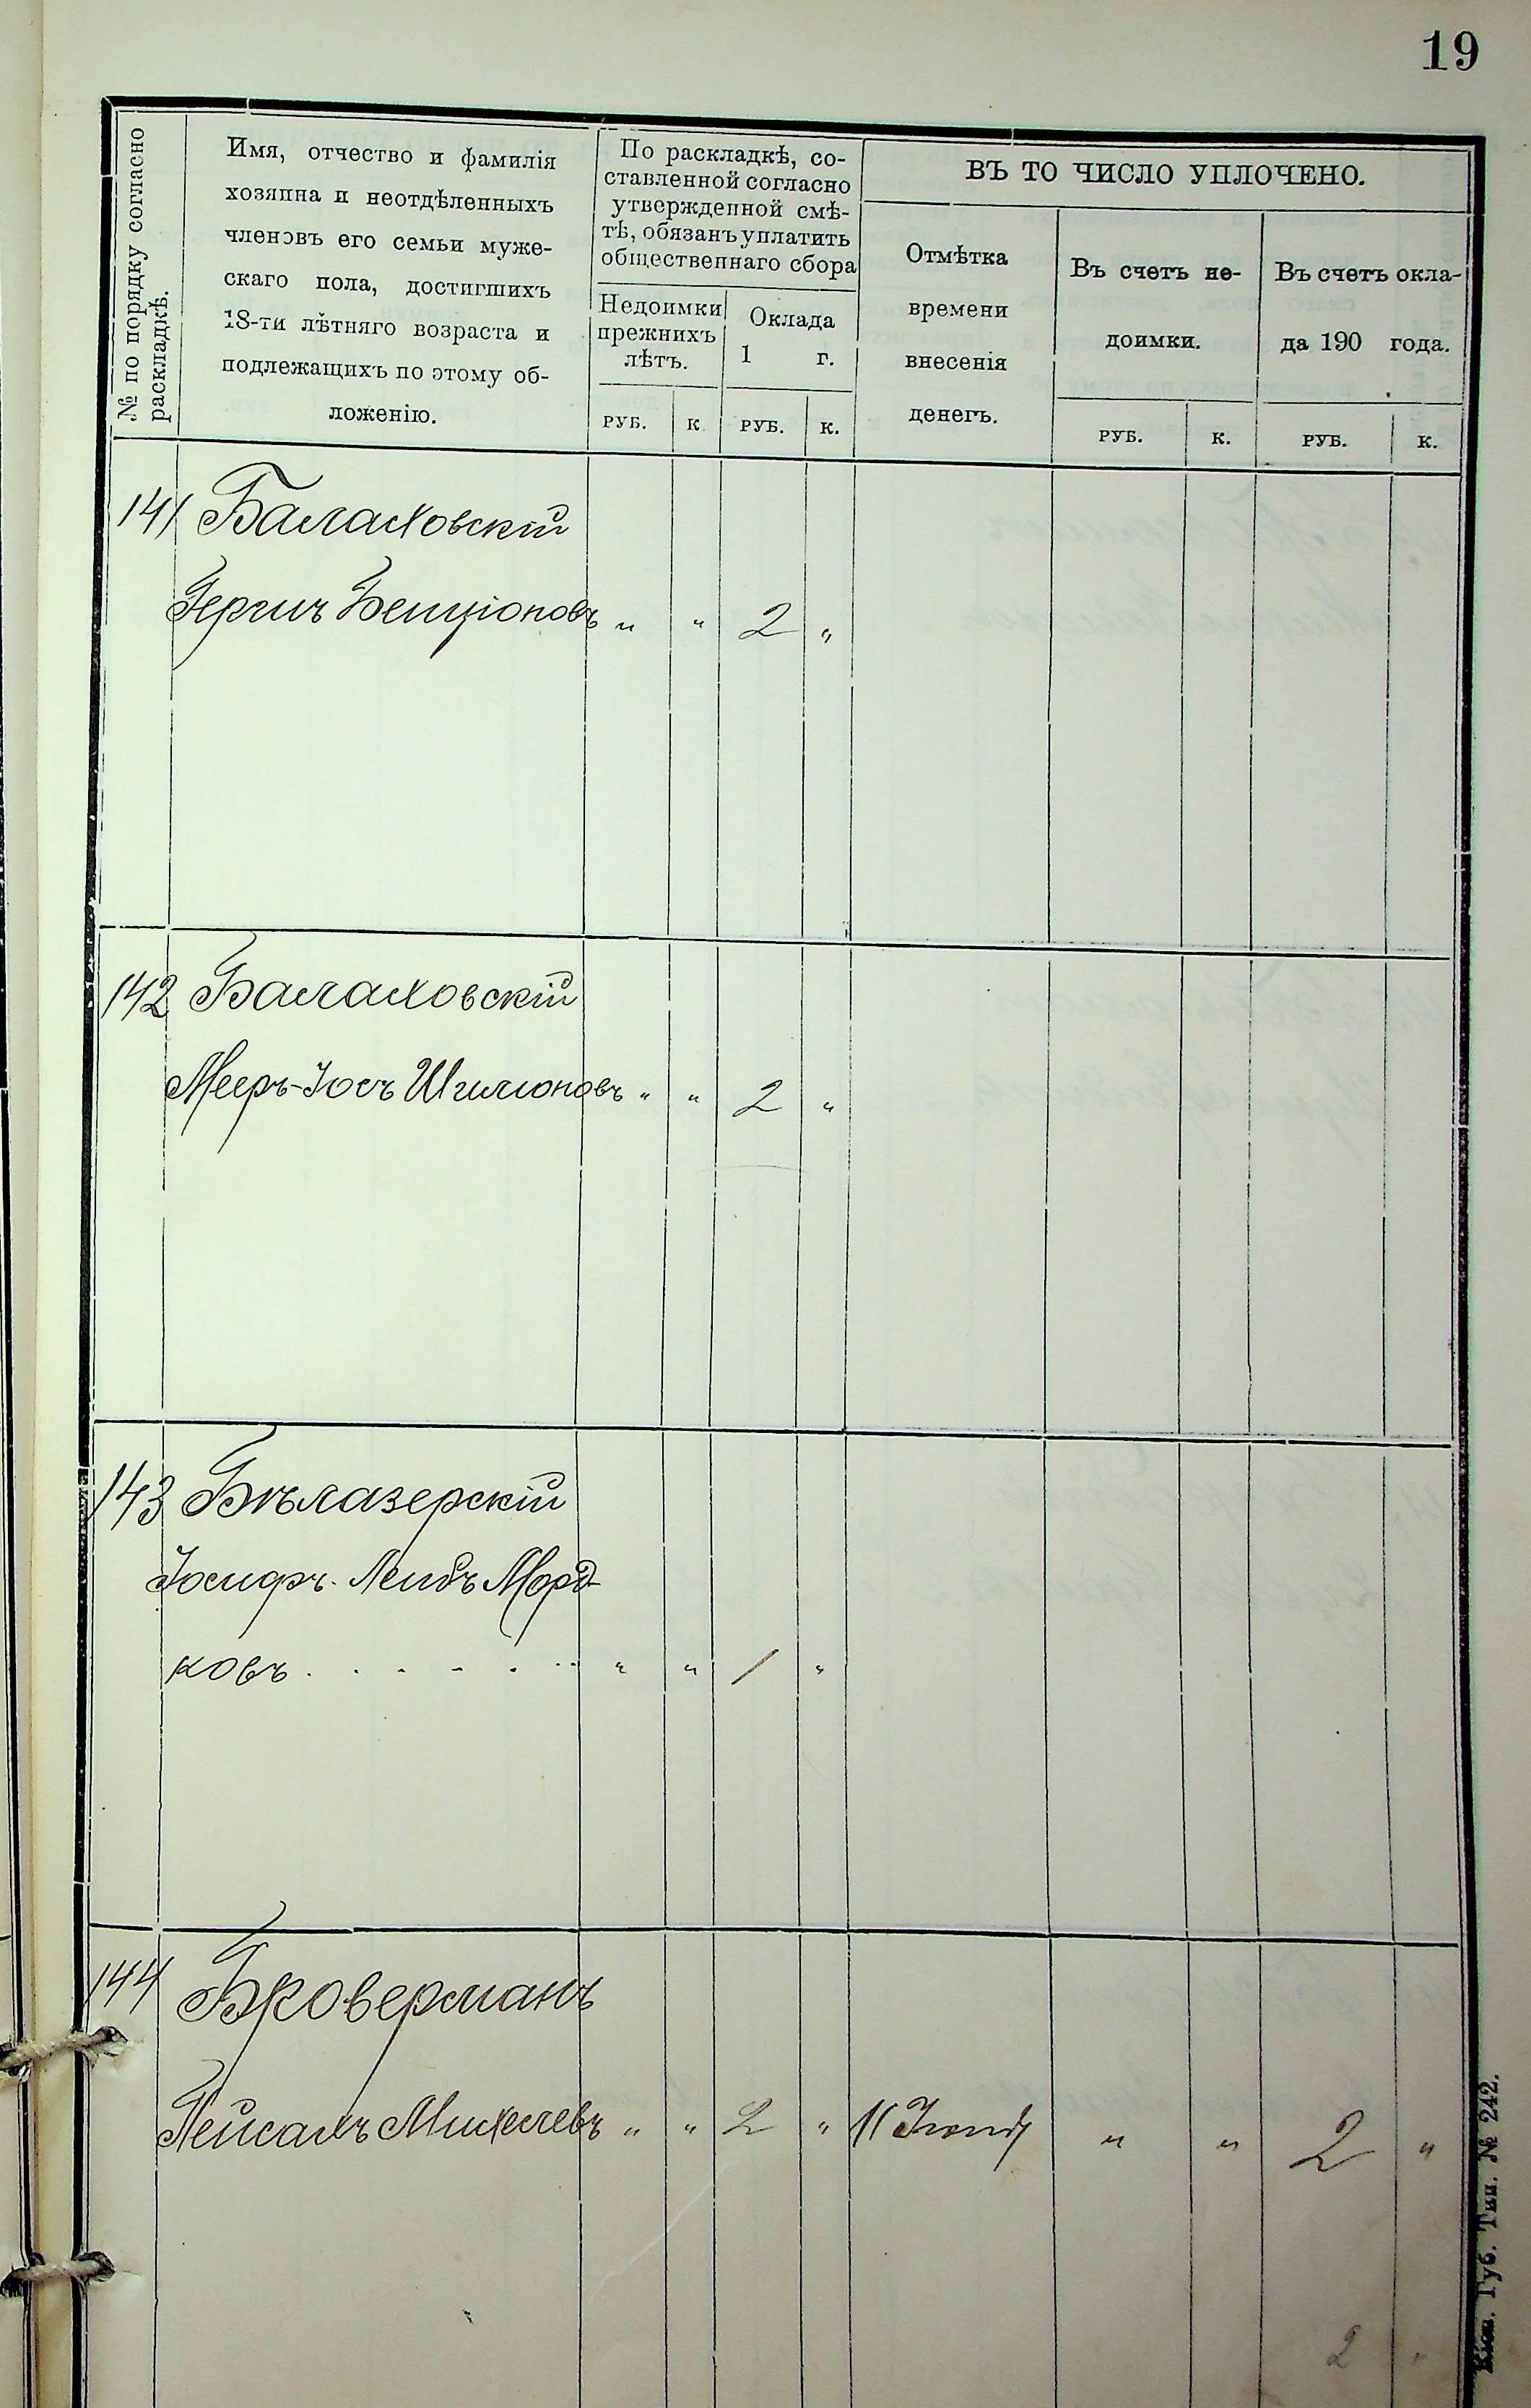 19
№ по порядку согласно
раскладкѣ.
Имя, отчество и фамилія
хозяина и неотдѣленныхъ
членовъ его семьи муже-
скаго пола, достигшихъ
18-ти лѣтняго возраста и
подлежащихъ по этому об-
ложенію.
По раскладкѣ, со-
ставленной согласно
утвержденной смѣ-
тѣ, обязанъ уплатить
общественнаго сбора
Недоимки
прежнихъ
лѣтъ.
Оклада
1 г.
РУБ. К. РУБ. К.
ВЪ ТО ЧИСЛО УПЛОЧЕНО.
Отмѣтка
времени
внесенія
денегъ.
Въ счетъ не-
доимки.
Въ счетъ окла-
да 190 года.
РУБ. К. РУБ. К.
141 Балаховскій
Бенціоновъ " " 2 "
142 Балаховскій
Мееръ-Іось Шилионовъ " " 2 "
143 Бѣлазерскій
Іосифъ-Лейбъ Морд-
ковъ . . . . . . . " " 1 "
144 Броверманъ
Пейсахъ Михелевъ " " 2 " 11 Іюня " " 2 "
2 "
Кіев. Губ. Тип. № 242.